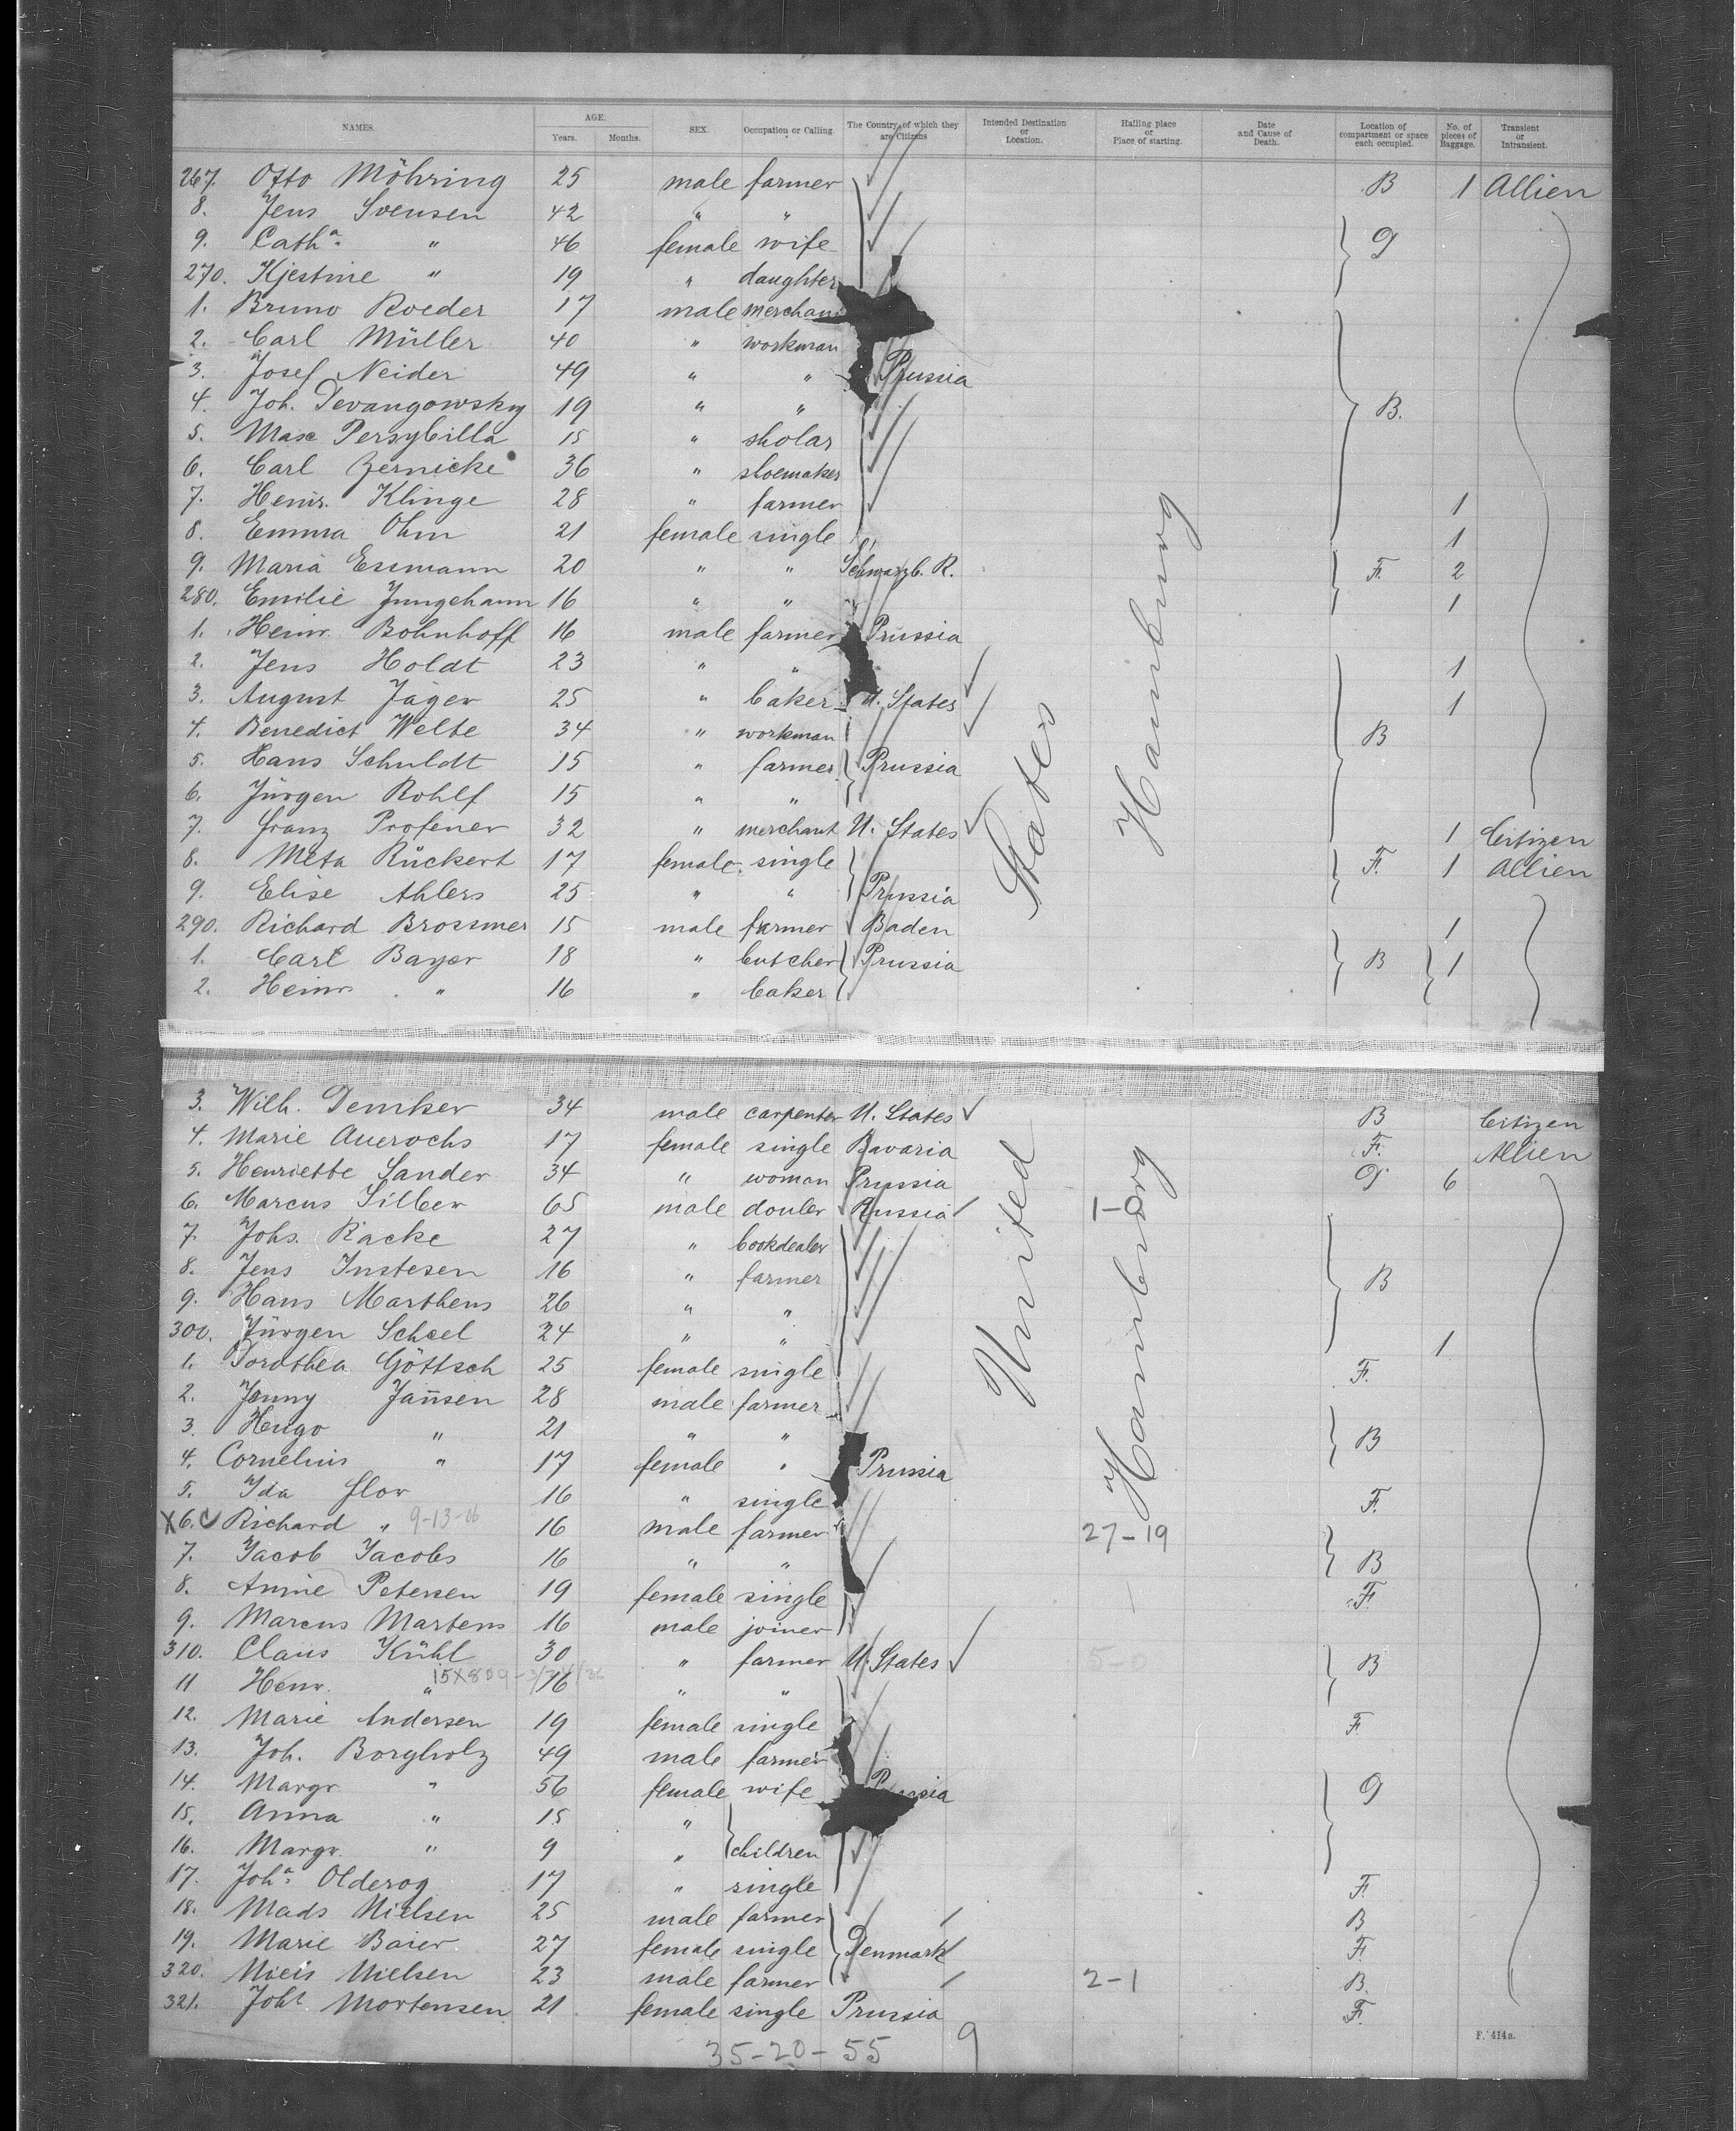 NAMES. AGE. Years. Months. SEX. Occupation or Calling. The Country of which they are Citizens Intended Destination or Location. Hailing place or Place of starting. Date and Cause of Death. Location of compartment or space each occupied. No. of pieces of Baggage. Transient or Intransient.
267. Otto Möhring 25 male farmer B 1 Allien
8. Jens Svensen 42 " "
9. Cathª " 46 female wife G
270. Kjestine " 19 " daughter
1. Bruno Roeder 17 male merchan
2. Carl Müller 40 " workman
3. Josef Neider 49 " " Prussia
4. Joh. Devangowsky 19 " " B.
5. Max Persybilla 15 " sholar
6. Carl Zernicke 36 " shoemaker
7. Heinr. Klinge 28 " farmer 1
8. Emma Ohm 21 female single 1
9. Maria Essmann 20 " " Schwarzb. R. F. 2
280. Emilie Jungehann 16 " " " 1
1. Heinr. Bohnhoff 16 male farmer Prussia
2. Jens Holdt 23 " " 1
3. August Jäger 25 " baker U. States 1
4. Benedict Welte 34 " workman B
5. Hans Schuldt 15 " farmer Prussia
6. Jürgen Rohlf 15 " "
7. Franz Profener 32 " merchant U. States 1 Citizen
8. Meta Rückert 17 female single F. 1 Allien
9. Elise Ahlers 25 " " Prussia
290. Richard Brossmer 15 male farmer Baden 1
1. Carl Bayer 18 " butcher Prussia B 1
2. Heinr. " 16 " baker
States
Hamburg
3. Wilh. Demker 34 male carpenter U. States B Citizen
4. Marie Auerochs 17 female single Bavaria F. Allien
5. Henriette Sander 34 " woman Prussia G 6
6. Marcus Silber 65 male douler Russia 1-0
7. Johs. Racke 27 " bookdealer
8. Jens Instesen 16 " farmer B
9. Hans Marthens 26 " "
300. Jürgen Scheel 24 " " 1
1. Dorothea Göttsch 25 female single F.
2. Jenny Jansen 28 male farmer
3. Hugo " 21 " " B
4. Cornelius " 17 female " Prussia
5. Ida Flor 16 " single F.
X 6. Richard " 9-13-06 16 male farmer 27-19
7. Jacob Jacobs 16 " " B
8. Annie Petersen 19 female single F.
9. Marcus Martens 16 male joiner
310. Claus Kühl 30 " farmer U. States B
11 Heinr. " 16 " "
12. Marie Andersen 19 female single F.
13. Joh. Borgholz 49 male farmer
14. Margr. " 56 female wife Prussia G
15. Anna " 15 "
16. Margr. " 9 " children
17. Johª Olderog 17 " single F.
18. Mads Nielsen 25 male farmer B
19. Marie Baier 27 female single Denmark F.
320. Niels Nielsen 23 male farmer 2-1 B.
321. Joht Mortensen 21 female single Prussia F.
United
Hamburg
35-20-55 9
F. 414a.